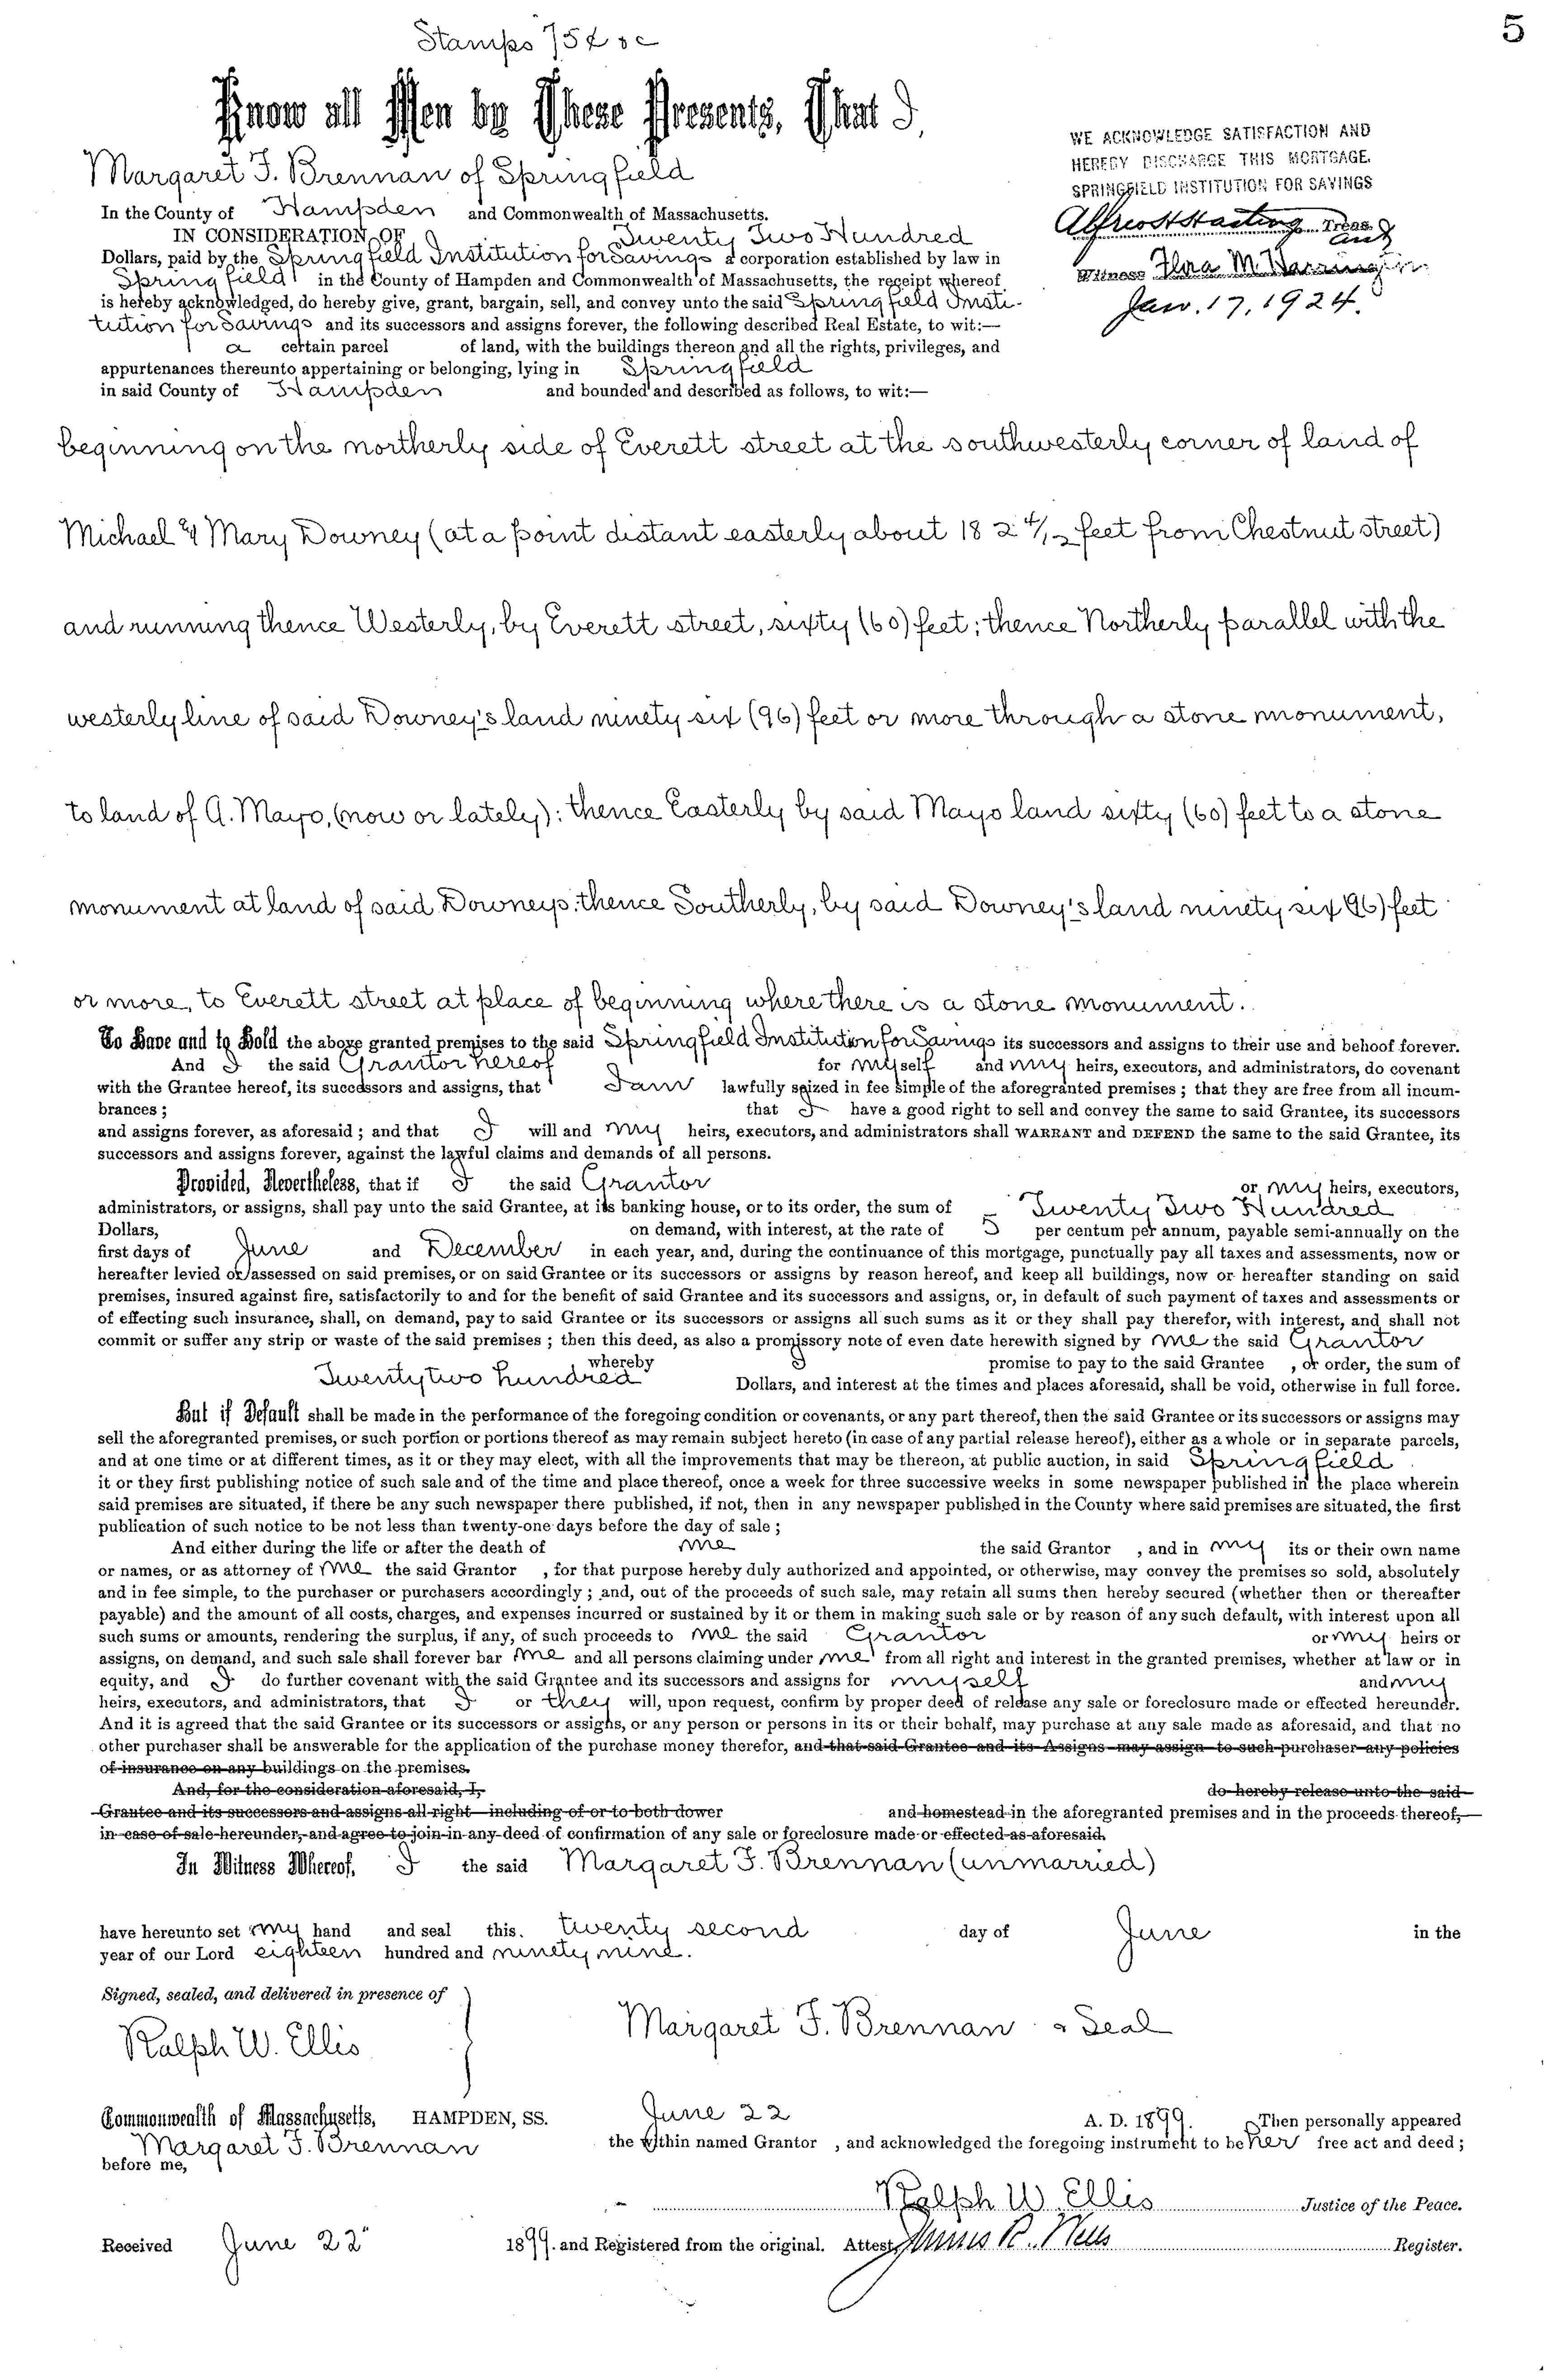 5
Stamps 75¢ &c
Know all Men by These Presents, That I,
Margaret F. Brennan of Springfield
In the County of Hampden and Commonwealth of Massachusetts.
IN CONSIDERATION OF Twenty Two Hundred
Dollars, paid by the Springfield Institution for Savings a corporation established by law in
Springfield in the County of Hampden and Commonwealth of Massachusetts, the receipt whereof
is hereby acknowledged, do hereby give, grant, bargain, sell, and convey unto the said Springfield Insti-
tution for Savings and its successors and assigns forever, the following described Real Estate, to wit:—
a certain parcel of land, with the buildings thereon and all the rights, privileges, and
appurtenances thereunto appertaining or belonging, lying in Springfield
in said County of Hampden and bounded and described as follows, to wit:—
WE ACKNOWLEDGE SATISFACTION AND
HEREBY DISCHARGE THIS MORTGAGE.
SPRINGFIELD INSTITUTION FOR SAVINGS
Treas.
Witness Flora M. Harrington
Jan. 17, 1924.
beginning on the northerly side of Everett street at the southwesterly corner of land of
Michael & Mary Downey (at a point distant easterly about 182 4/12 feet from Chestnut street)
and running thence Westerly, by Everett street, sixty (60) feet; thence Northerly parallel with the
westerly line of said Downey's land ninety six (96) feet or more through a stone monument,
to land of A. Mayo, (now or lately): thence Easterly by said Mayo land sixty (60) feet to a stone
monument at land of said Downeys: thence Southerly, by said Downey's land ninety six (96) feet
or more, to Everett street at place of beginning where there is a stone monument.
To Have and to Hold the above granted premises to the said Springfield Institution for Savings its successors and assigns to their use and behoof forever.
And I the said Grantor hereof for myself and my heirs, executors, and administrators, do covenant
with the Grantee hereof, its successors and assigns, that I am lawfully seized in fee simple of the aforegranted premises; that they are free from all incum-
brances; that I have a good right to sell and convey the same to said Grantee, its successors
and assigns forever, as aforesaid; and that I will and my heirs, executors, and administrators shall WARRANT and DEFEND the same to the said Grantee, its
successors and assigns forever, against the lawful claims and demands of all persons.
Provided, Nevertheless, that if I the said Grantor or my heirs, executors,
administrators, or assigns, shall pay unto the said Grantee, at its banking house, or to its order, the sum of Twenty Two Hundred
Dollars, on demand, with interest, at the rate of 5 per centum per annum, payable semi-annually on the
first days of June and December in each year, and, during the continuance of this mortgage, punctually pay all taxes and assessments, now or
hereafter levied or assessed on said premises, or on said Grantee or its successors or assigns by reason hereof, and keep all buildings, now or hereafter standing on said
premises, insured against fire, satisfactorily to and for the benefit of said Grantee and its successors and assigns, or, in default of such payment of taxes and assessments or
of effecting such insurance, shall, on demand, pay to said Grantee or its successors or assigns all such sums as it or they shall pay therefor, with interest, and shall not
commit or suffer any strip or waste of the said premises; then this deed, as also a promissory note of even date herewith signed by me the said Grantor
whereby I promise to pay to the said Grantee , or order, the sum of
Twenty two hundred Dollars, and interest at the times and places aforesaid, shall be void, otherwise in full force.
But if Default shall be made in the performance of the foregoing condition or covenants, or any part thereof, then the said Grantee or its successors or assigns may
sell the aforegranted premises, or such portion or portions thereof as may remain subject hereto (in case of any partial release hereof), either as a whole or in separate parcels,
and at one time or at different times, as it or they may elect, with all the improvements that may be thereon, at public auction, in said Springfield
it or they first publishing notice of such sale and of the time and place thereof, once a week for three successive weeks in some newspaper published in the place wherein
said premises are situated, if there be any such newspaper there published, if not, then in any newspaper published in the County where said premises are situated, the first
publication of such notice to be not less than twenty-one days before the day of sale;
And either during the life or after the death of me the said Grantor , and in my its or their own name
or names, or as attorney of me the said Grantor , for that purpose hereby duly authorized and appointed, or otherwise, may convey the premises so sold, absolutely
and in fee simple, to the purchaser or purchasers accordingly; and, out of the proceeds of such sale, may retain all sums then hereby secured (whether then or thereafter
payable) and the amount of all costs, charges, and expenses incurred or sustained by it or them in making such sale or by reason of any such default, with interest upon all
such sums or amounts, rendering the surplus, if any, of such proceeds to me the said Grantor or my heirs or
assigns, on demand, and such sale shall forever bar me and all persons claiming under me from all right and interest in the granted premises, whether at law or in
equity, and I do further covenant with the said Grantee and its successors and assigns for myself and my
heirs, executors, and administrators, that I or they will, upon request, confirm by proper deed of release any sale or foreclosure made or effected hereunder.
And it is agreed that the said Grantee or its successors or assigns, or any person or persons in its or their behalf, may purchase at any sale made as aforesaid, and that no
other purchaser shall be answerable for the application of the purchase money therefor, and that said Grantee and its Assigns may assign to such purchaser any policies
of insurance on any buildings on the premises.
And, for the consideration aforesaid, I, do hereby release unto the said
Grantee and its successors and assigns all right including of or to both dower and homestead in the aforegranted premises and in the proceeds thereof,
in case of sale hereunder, and agree to join in any deed of confirmation of any sale or foreclosure made or effected as aforesaid.
In Witness Whereof, I the said Margaret F. Brennan (unmarried)
have hereunto set my hand and seal this. twenty second day of June in the
year of our Lord eighteen hundred and ninety nine.
Signed, sealed, and delivered in presence of
Ralph W. Ellis
Margaret F. Brennan & Seal
Commonwealth of Massachusetts, HAMPDEN, SS. June 22 A. D. 1899. Then personally appeared
Margaret F. Brennan the within named Grantor , and acknowledged the foregoing instrument to be her free act and deed;
before me,
Ralph W. Ellis Justice of the Peace.
Received June 22" 1899. and Registered from the original. Attest, James R. Wells Register.